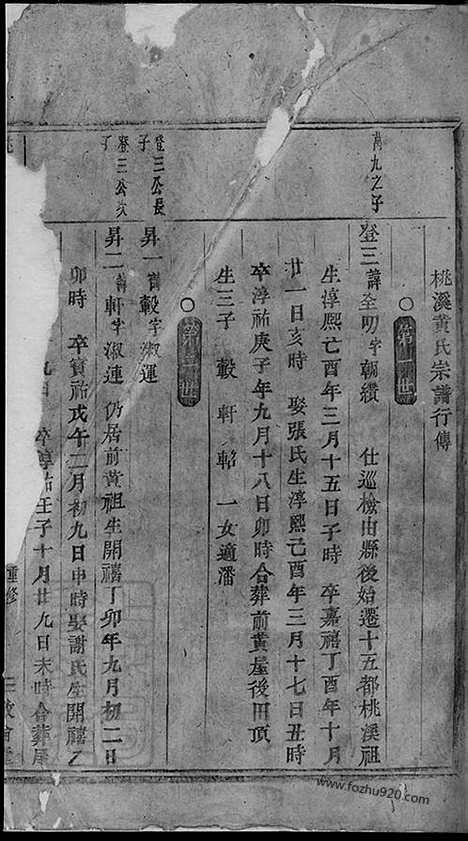 桃溪黃氏宗譜行傳
第十世
南九之子
登三諱全明字朝纘 仕巡檢由縣後始遷十五都桃溪祖
生淳熙己酉年三月十五日子時 卒嘉禧丁酉年十月
廿一日亥時 娶張氏生淳熙己酉年三月十七日丑時
卒淳祐庚子年九月十八日卯時合葬前黃屋後田頂
生三子 轂 軒 軺 一女適潘
第 世
登三公長子
昇一諱轂字淑運
登三公次子
昇二諱軒字淑連 仍居前黃祖生開禧丁卯年九月初二日
卯時 卒寶祐戊午二月初九日申時娶謝氏生開禧乙
九日 卒淳祐壬子十月廿九日未時合葬屋
重修
www.fozhu920.com